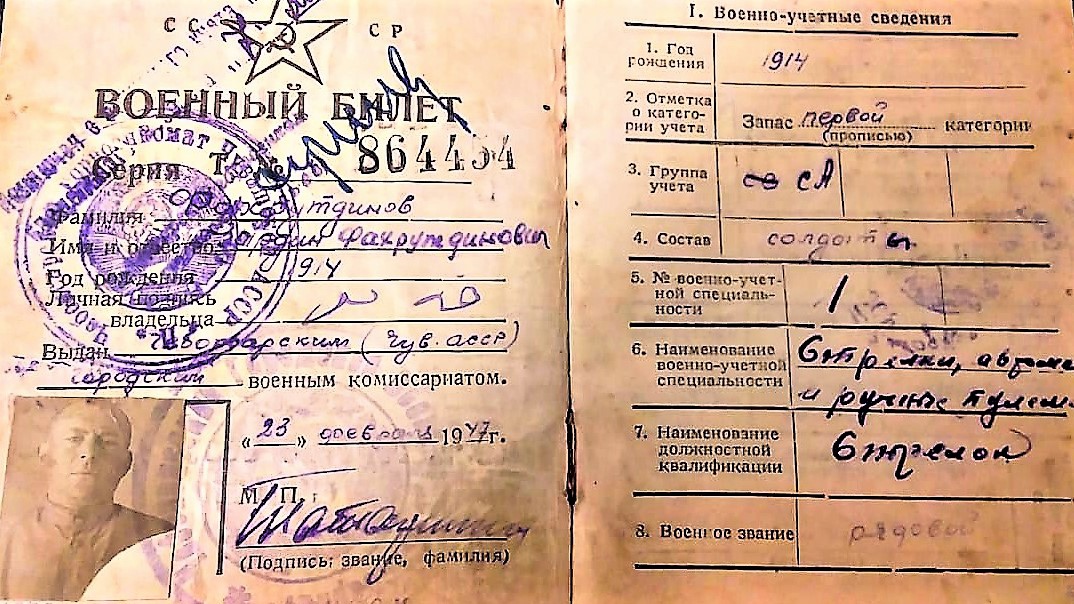 СССР
ВОЕННЫЙ БИЛЕТ
Серия Т № 864454
Фамилия
Имя и отчество Фахрутдинович
Год рождения 1914
Личная подпись
владельца
Выдан Чебоксарским (Чув. АССР)
городским военным комиссариатом.
«23» февраля 1947г.
М. П.
(Подпись: звание, фамилия)
I. Военно-учетные сведения
1. Год
рождения
1914
2. Отметка
о катего-
рии учета
Запас первой категории
(прописью)
3. Группа
учета
СА
4. Состав
солдаты
5. № военно-учет-
ной специаль-
ности
1
6. Наименование
военно-учетной
специальности
Стрелки, автома
и ручные пулем
7. Наименование
должностной
квалификации
Стрелок
8. Военное звание
рядовой